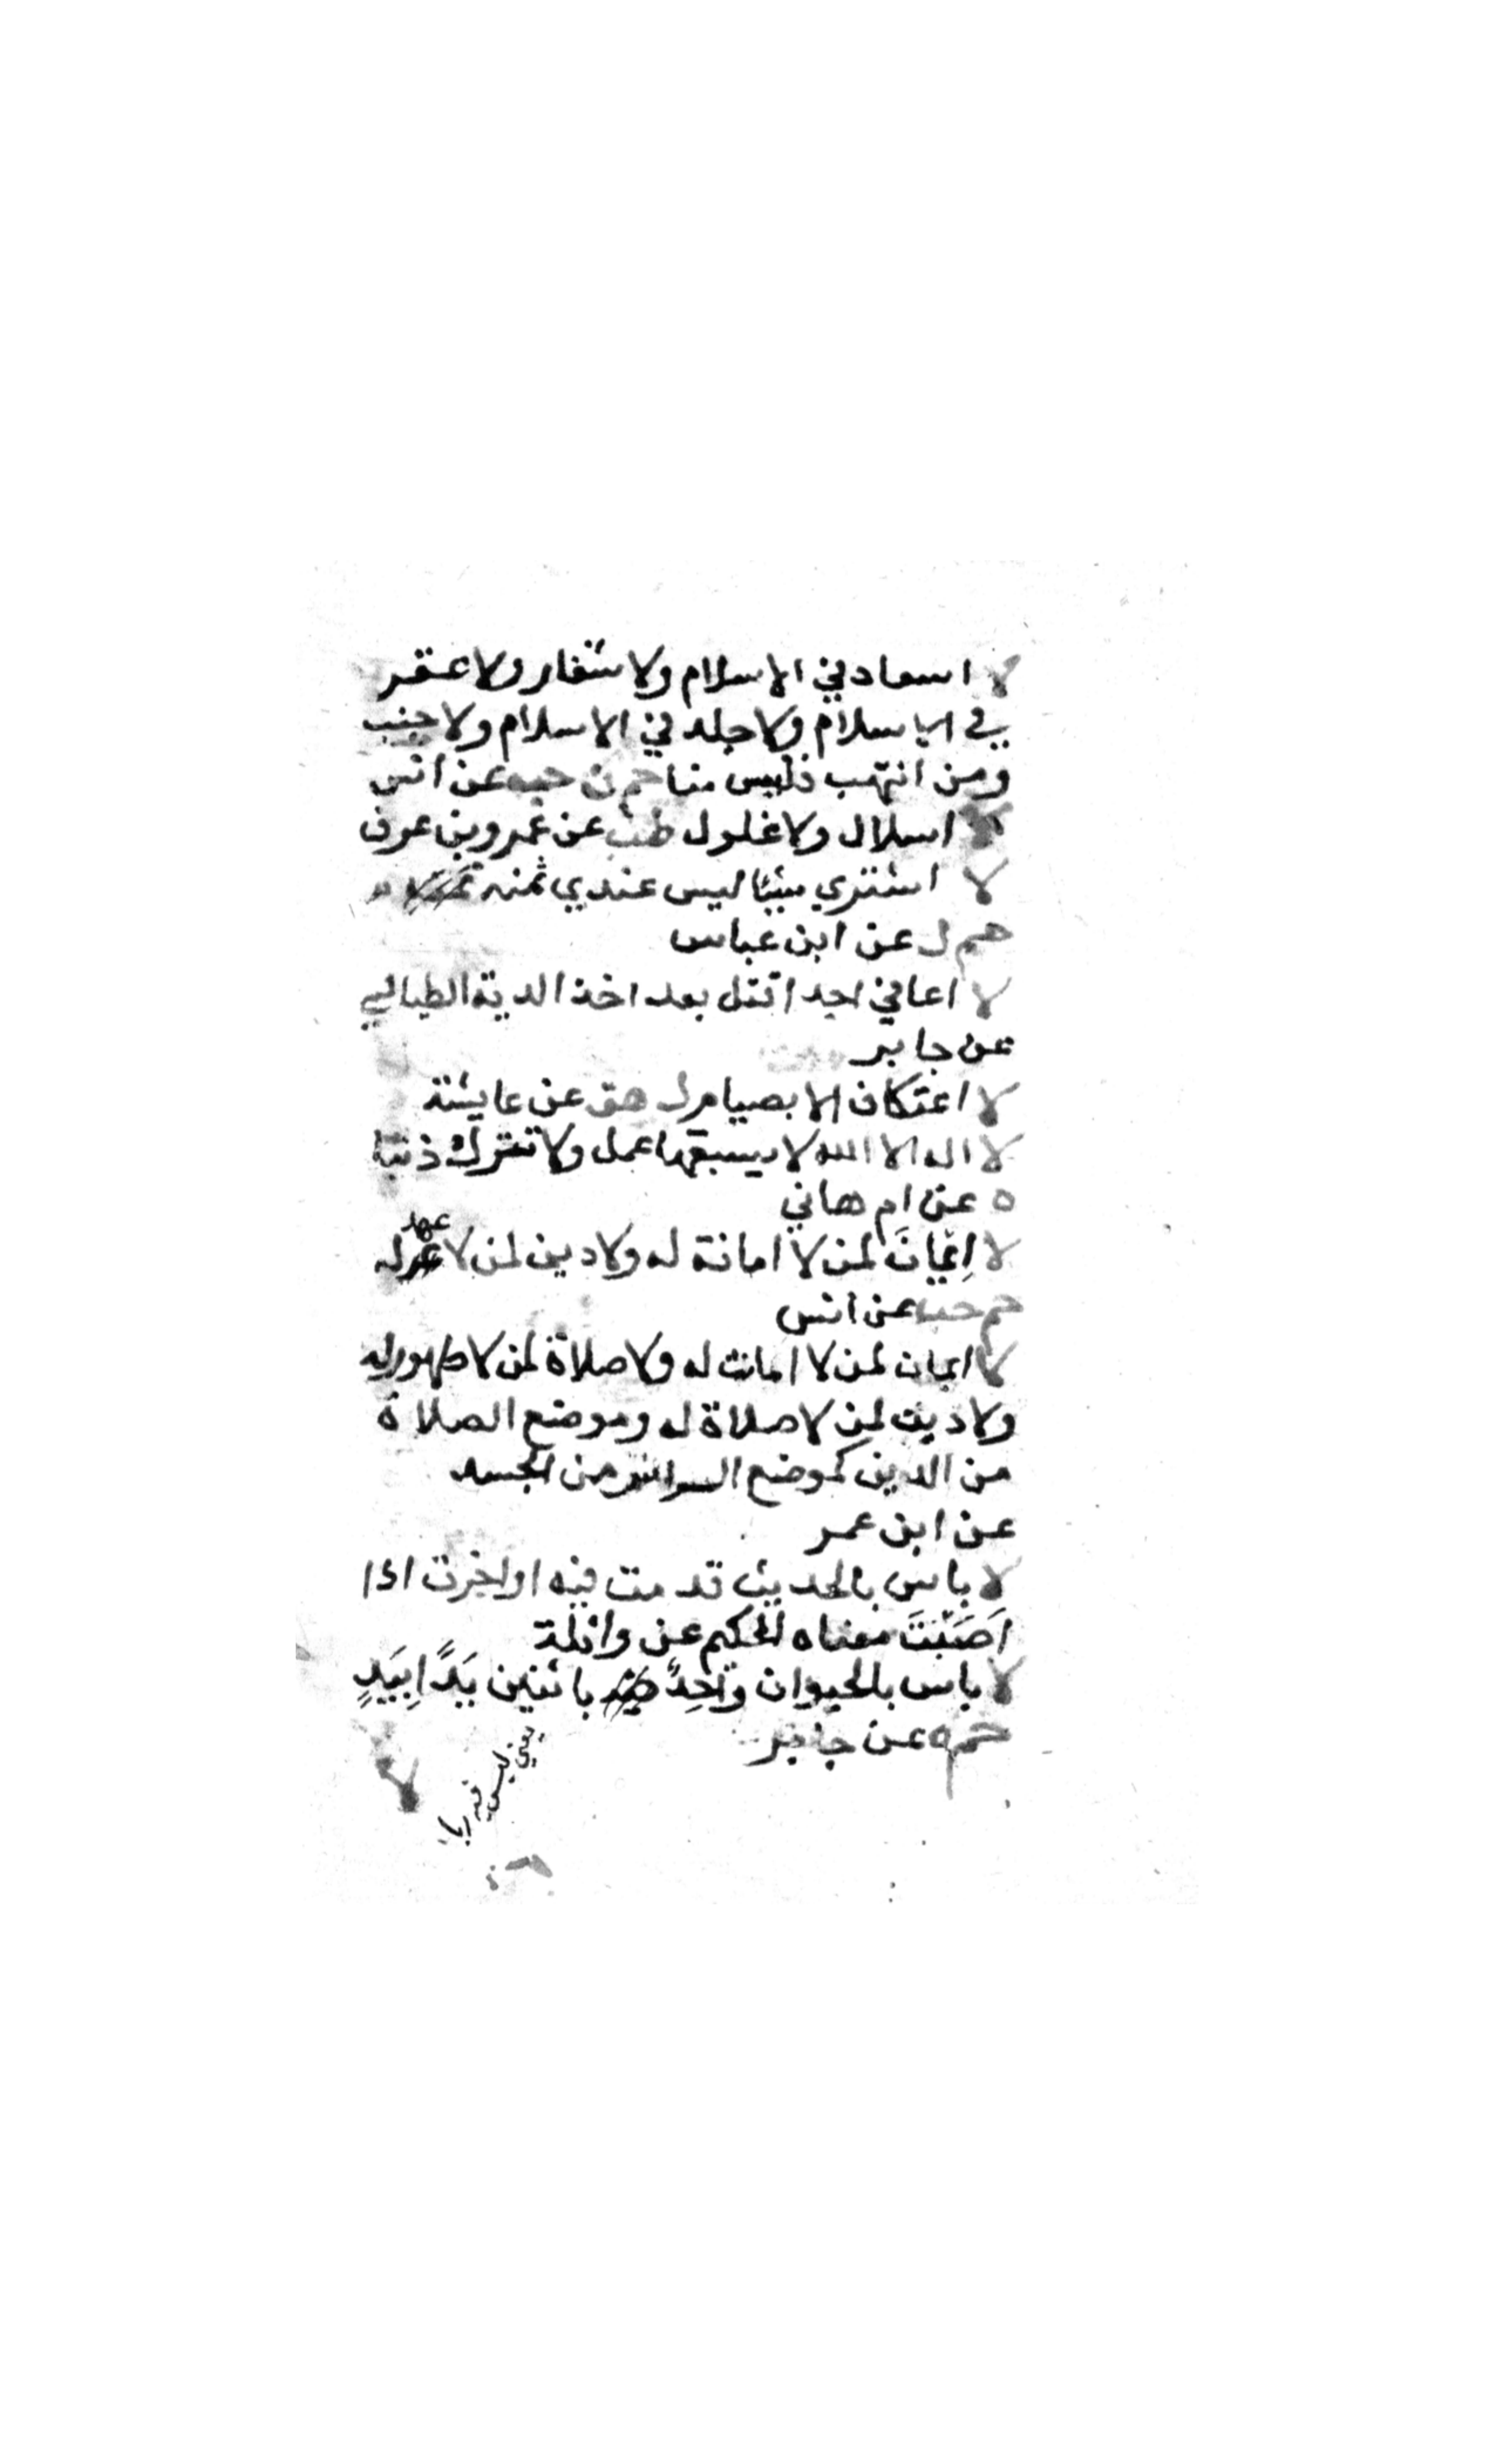 لا اسعاد في الاسلام ولا شغار ولا عقر
في الاسلام ولا جلد في الاسلام ولا جنب
ومن انتهب فليس منا حم ن حب عن انس
لا اسلال ولا غلول طب عن عمرو بن عوف
لا اشتري شيئا ليس عندي ثمنه
حم ك عن ابن عباس
لا اعافي احد اقتل بعد اخذ الدية الطيالسي
عن جابر
لا اعتكاف الا بصيام ك هق عن عايشة
لا اله الا الله لا يسبقها عمل ولا تترك ذنبا
ه عن ام هاني
لا إيمانَ لمن لا امانة له ولا دين لمن لا عهد له
حم حب عن انس
لا ايمان لمن لا امانت له ولا صلاة لمن لا طهور له
ولا دين لمن لا صلاة له وموضع الصلاة
من الدين كموضع الراس من الجسد
عن ابن عمر
لا باس بالحديث قدمت فيه او اخرت اذا
اَصَبْتَ معناه الحكيم عن واثلة
لا باس بالحيوان واحِدً باثنين يَدًا بِيَدٍ
حم ه عن جابر
يعني ليس فيه ربا
لا